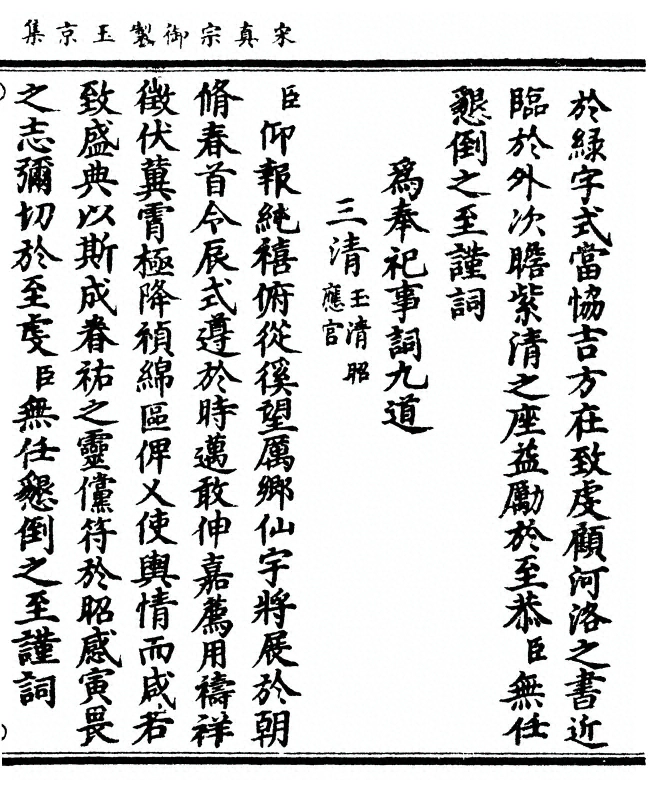 宋真宗御製玉京集
於綠字式當恊吉方在致虔顧河洛之書近
臨於外次瞻紫清之座益勵於至恭臣無任
懇倒之至謹詞
爲奉祀事詞九道
三清玉清昭應官
臣仰報純禧俯從徯望厲鄉仙宇將展於朝
脩春首令辰式遵於時邁敢伸嘉薦用禱祥
徵伏冀霄極降禎綿區俾乂使輿情而咸若
致盛典以斯成眷祐之靈儻符於昭感寅畏
之志彌切於至虔臣無任懇倒之至謹詞